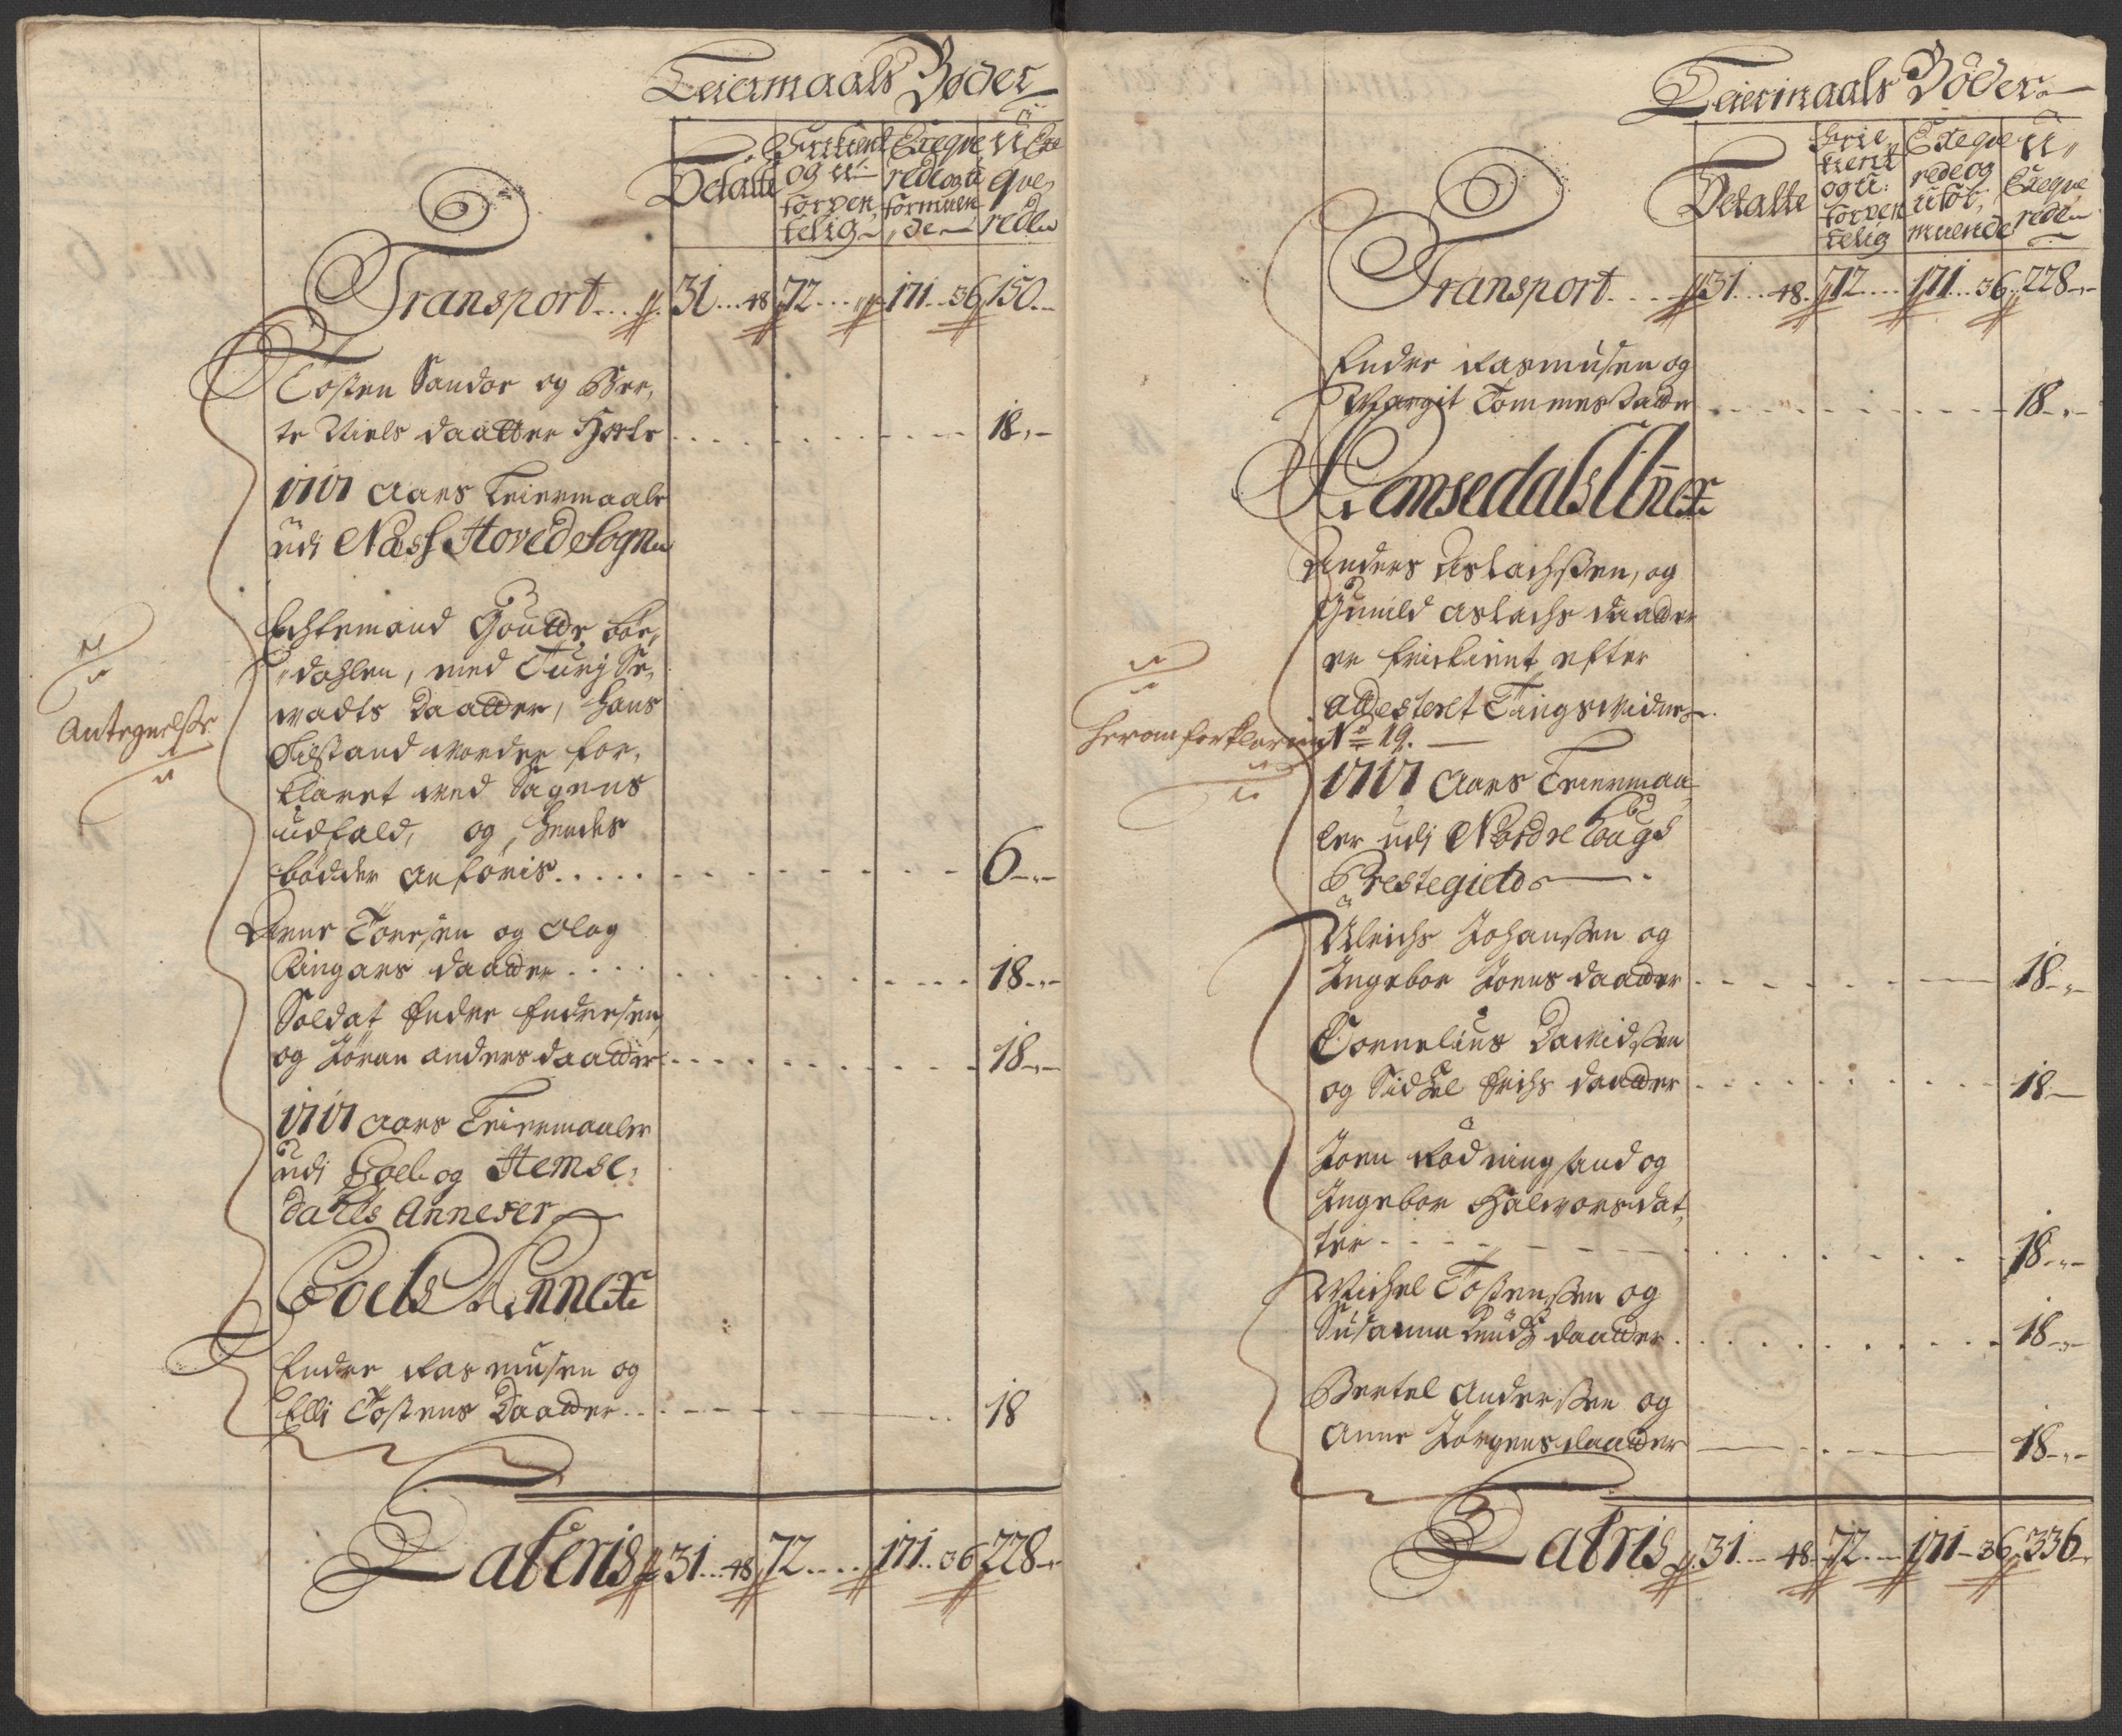 Leiermaals Bøder
Betalte
Frikient og u-forven,telig
Exeqve,rede og u formuen,de
U Exe qve,rede
Transport 31 48 72 171 36 150
Tosten Sandoe og Ber,
te Niels daatter
18
1717 Aars Leiermaale
udi Næss Hoved Sogn
Echtemand
dahlen, med Turj Se,
vadts Daatter, hans
Tilstand worder for,
klaret ved Sagens
udfald, og hendes
bødder anføris
6
Antegnelse
Arne Toresen og Olog
Ringars daatter
18
Soldat Endre Endresen
og Jøran Anders daatter
18
1717 Aars Leiermaaler
udi Goel og Hemse,
dahls Annexer
Goels Annex
Endre Rasmusen og
Elli Tostens Daatter
18
Lateris 31 48 72 171 36 228
Leiermaals Bøder
Betalte
Frie kient og u: forven telig
Exeqve rede og ufor,muende
U, Exeqve rede
Transport 31 48 72 171 36 228
Endre Rasmusen og
Margit Tommesdatter
18
Hemsedals Annex
Anders Aslachssen, og
Gunild Aslachs daatter
er frikient efter
attesteret Tingsvidne
No 19.
herom forklaring
1717 Aars Leiermaa,
ler udj Nordrehougs
Prestegield
Ulrichs Johanssen og
Ingebor Joens daatter
18
Cornelius Davidssen
og Sidzel Erichs daatter
18
Joen Rødningsand og
Ingebor Halvorsdat,
ter
18
Michel Tostenssen og
Susanna Knuds daatter
18
Bertel Anderssen og
Anne Jørgens daatter
18
Latris 31 48 72 171 36 336